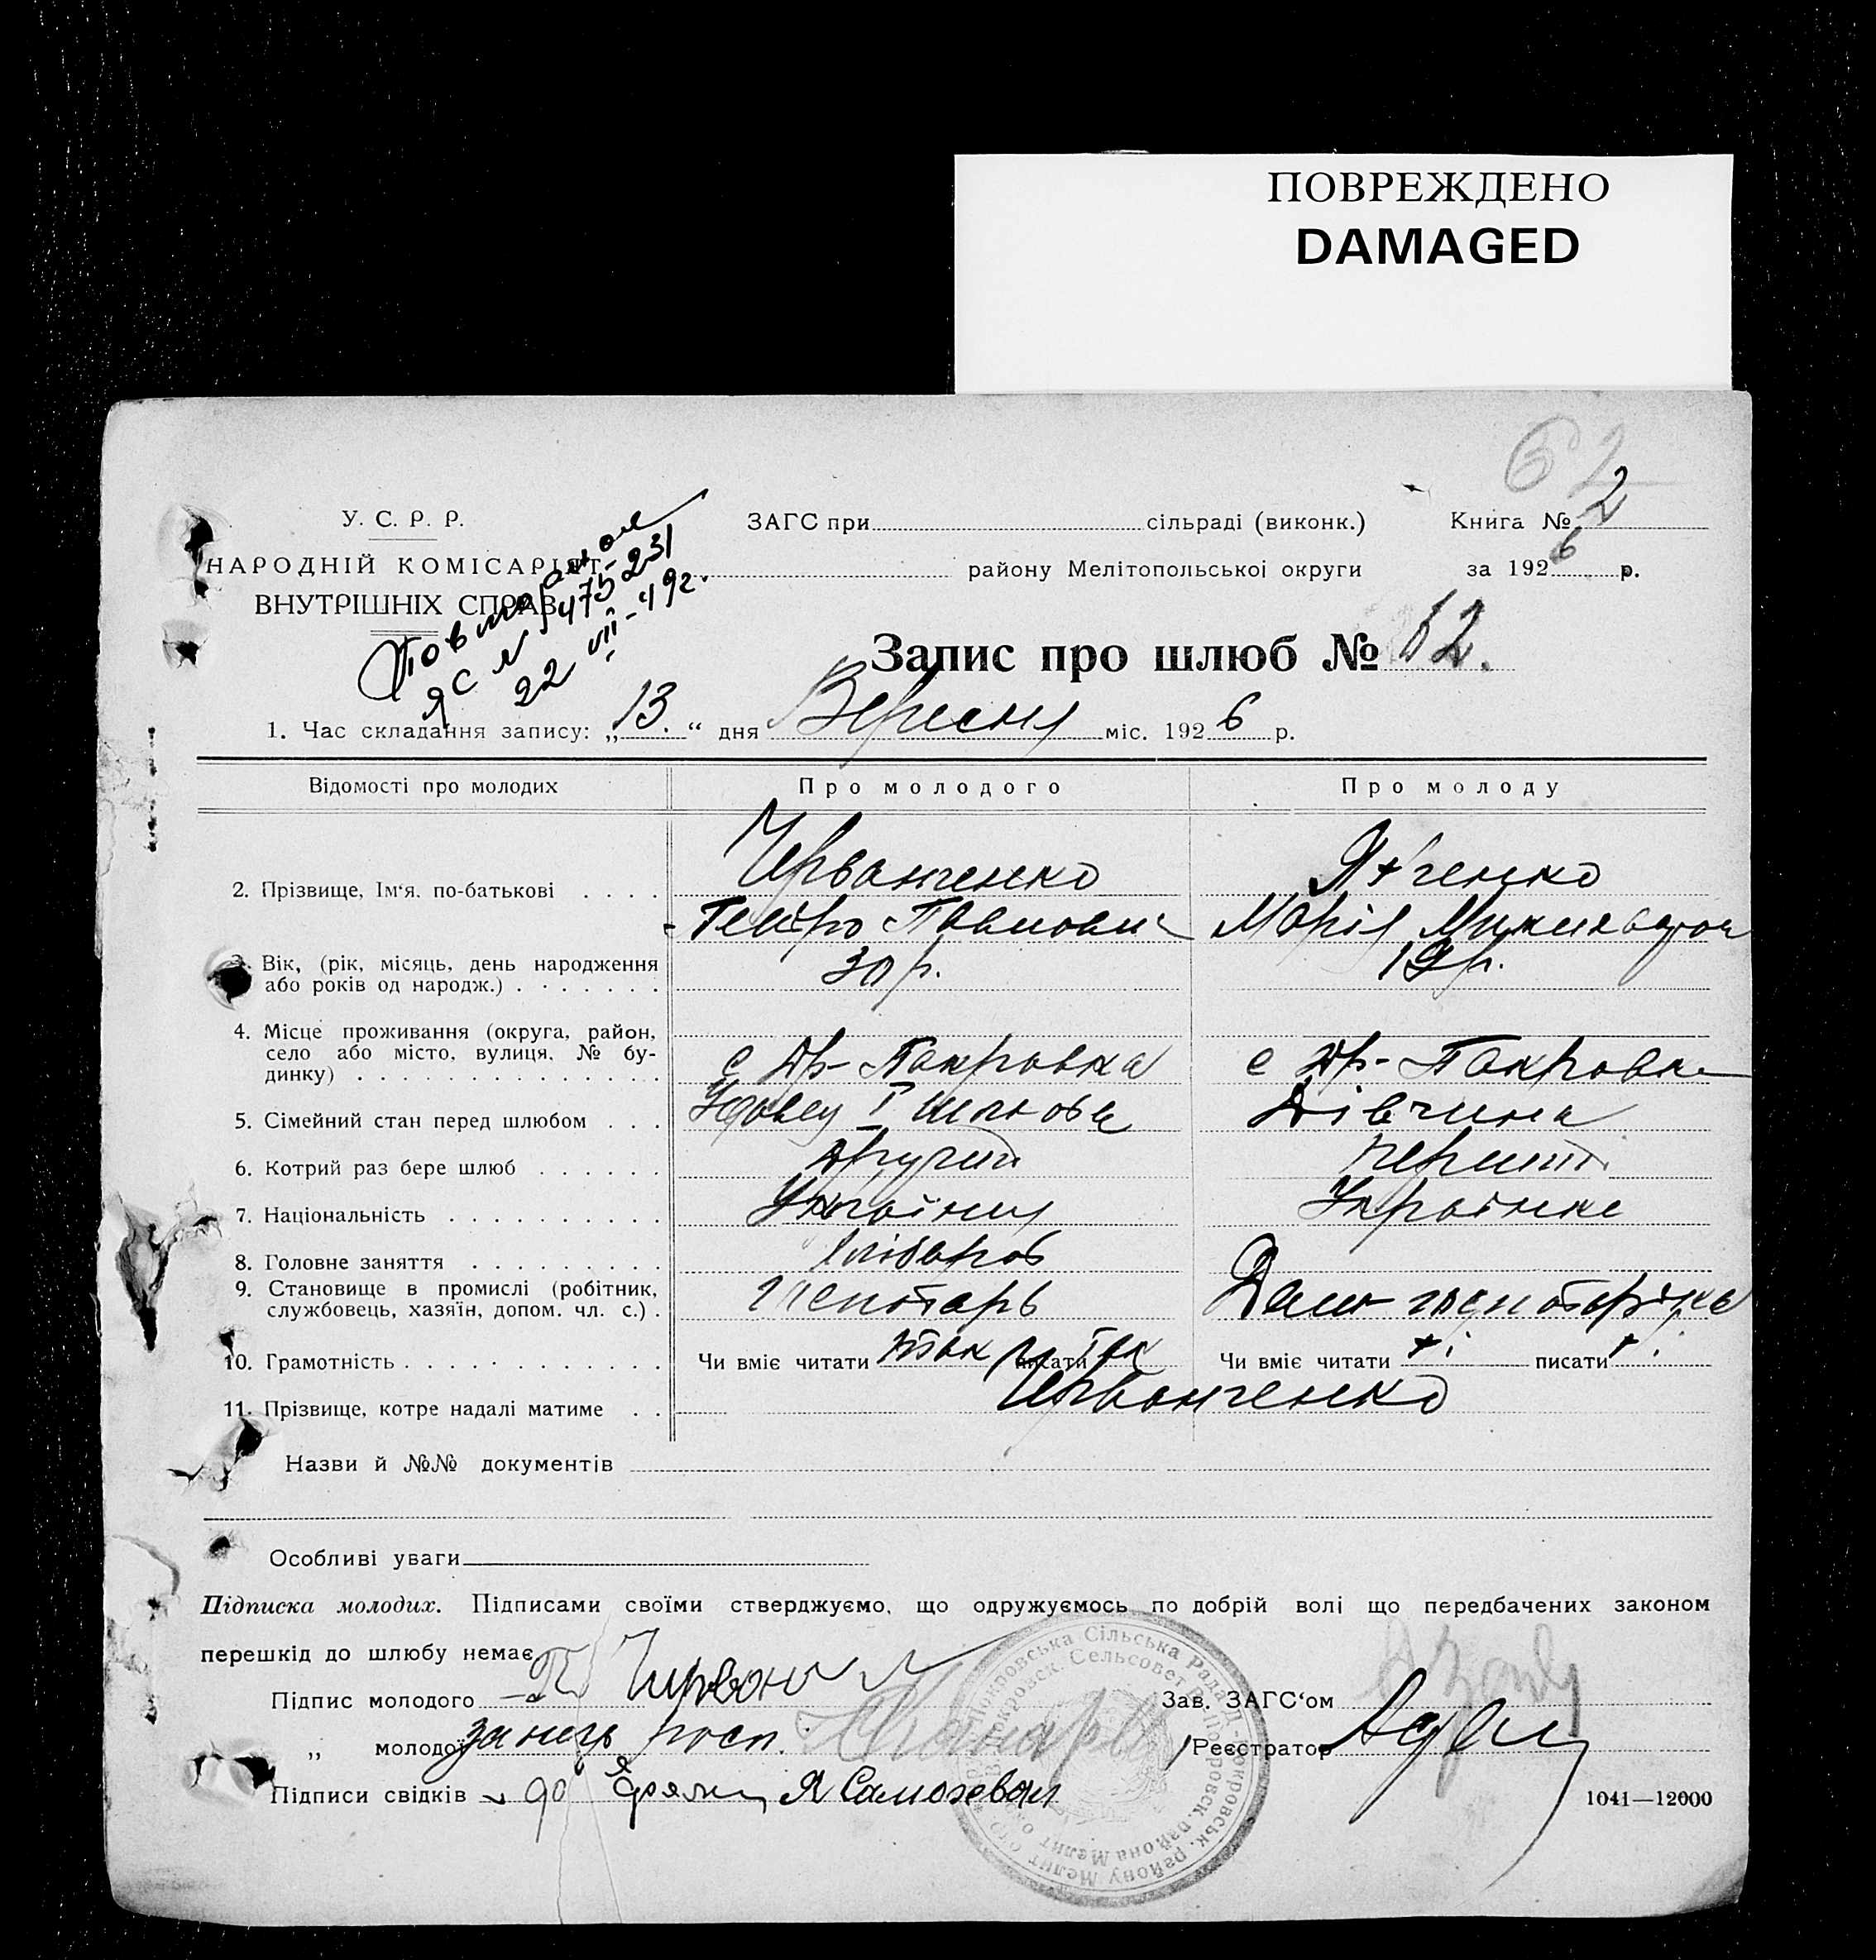 ПОВРЕЖДЕНО
DAMAGED
62
У. С. Р. Р.
НАРОДНІЙ КОМІСАРІЯТ
ВНУТРІШНІХ СПРАВ
ЗАГС при сільраді (виконк.)
Книга № 2
району Мелітопольської округи
за 1926 р.
475231
22 VII-
Запис про шлюб № 62.
1. Час складання запису: „13.“ дня Вересня міс. 1926 р.
Відомості про молодих Про молодого Про молоду
2. Прізвище, Ім‘я, по-батькові Черванченко
Петро Павлович Марія
3. Вік, (рік, місяць, день народження або років од народж.) 30 р. 19 р.
4. Місце проживання (округа, район,
село або місто, вулиця, № бу-
динку) с Др-Покровка с Др-Покровка
5. Сімейний стан перед шлюбом Удовец I шлюба Дівчина
6. Котрий раз бере шлюб Другий Перший
7. Національність Українец Українка
8. Головне заняття Хлібороб
9. Становище в промислі (робітник,
службовець, хазяїн, допом. чл. с.)
10. Грамотність Чи вміє читати так писати так Чи вміє читати писати
11. Прізвище, котре надалі матиме Черванченко
Назви й №№ документів
Особливі уваги
Підписка молодих. Підписами своїми стверджуємо, що одружуємось по добрій волі що передбачених законом
перешкід до шлюбу немає
Підпис молодого
Зав. ЗАГС‘ом
„ молодої за негр росп.
Реєстратор
Підписи свідків
1041—12000